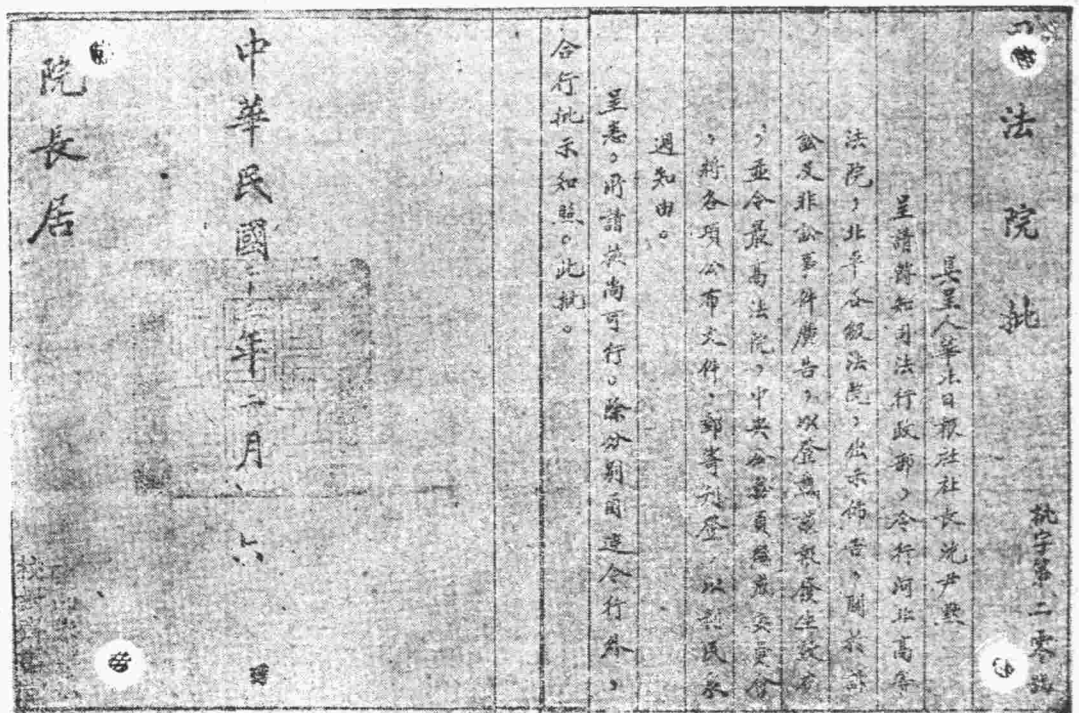 司法院批
批字第二零號
具呈人華北日報社社長沈尹默
呈請轉知司法行政部,令行河北高等
法院,北平各級法院,出示佈告,關於訴
訟及非訟事件廣告,以登載該報發生效力
,並令最高法院,中央公務員懲戒委員會
,將各項公布文件,郵寄刊登,以利民衆
週知由。
呈悉,所請核尚可行。除分別函達令行外,
合行批示知照。此批。
中華民國二十一年一月 六
院長居